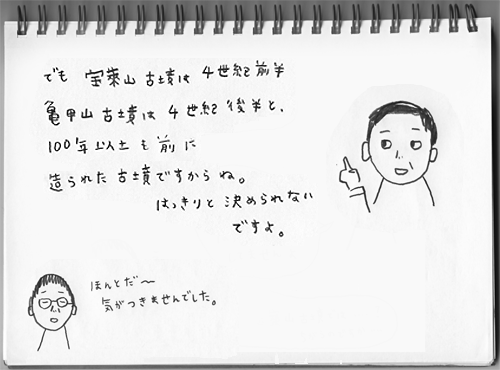 でも 宝莱山古墳は 4世紀前半
亀甲山古墳は 4世紀後半と、
100年以上も前に
造られた古墳ですからね。
はっきりと決められない
ですよ。
ほんとだ〜
気がつきませんでした。